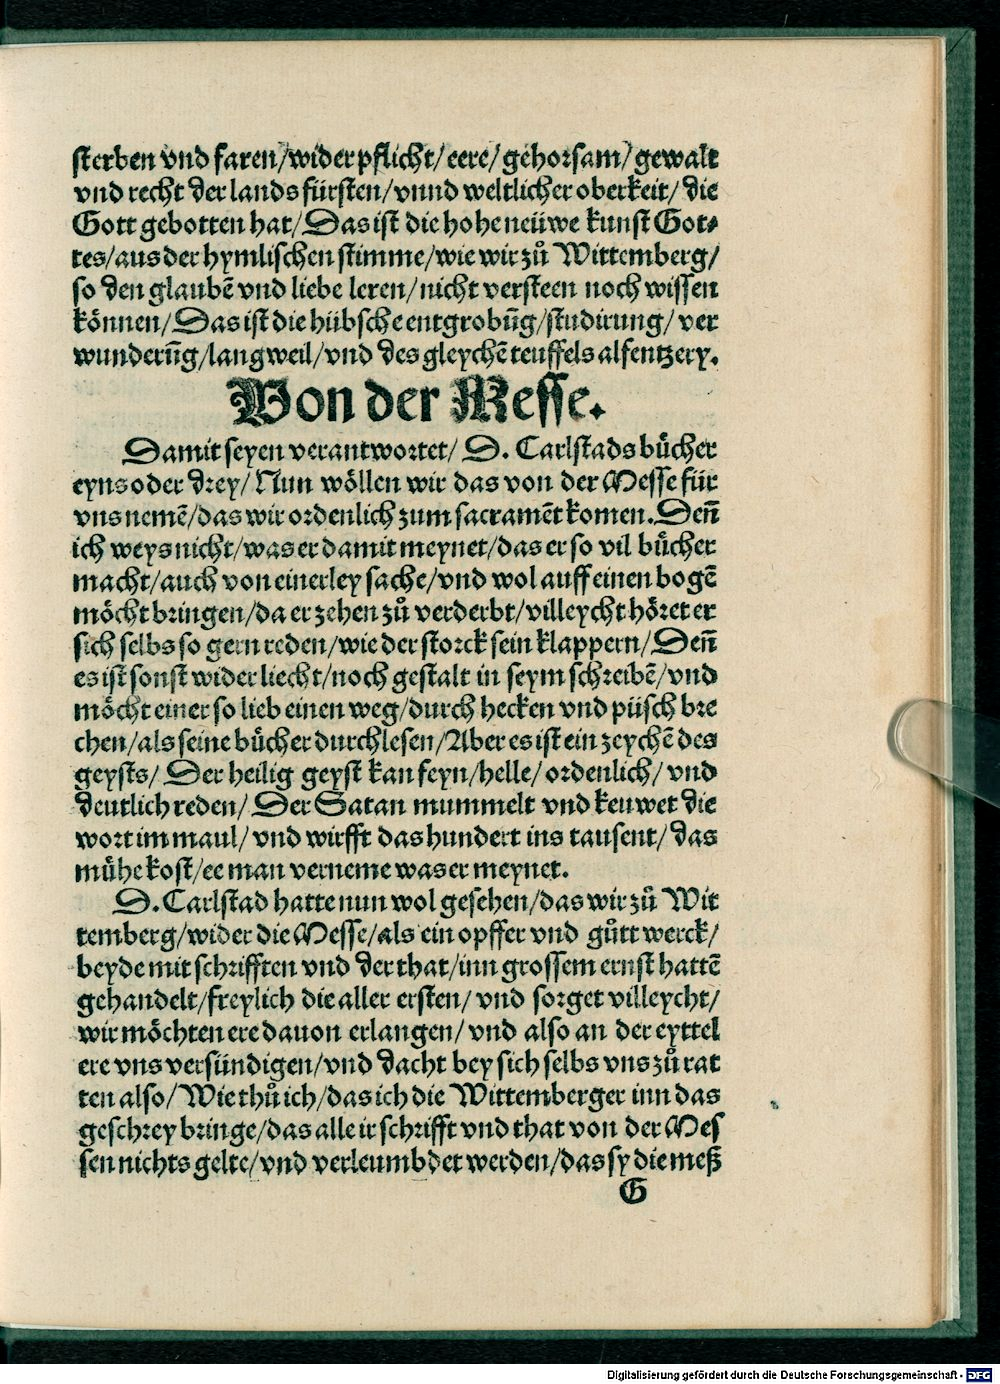 sterben vnd faren/wider pflicht/eere/gehorsam/gewalt
vnd recht der lands fürsten/vnnd weltlicher oberkeit/die
Gott gebotten hat/Das ist die hohe neüwe kunst Got⸗
tes/aus der hymlischen stimme/wie wir zů Wittemberg/
so den glaubẽ vnd liebe leren/nicht versteen noch wissen
können/Das ist die hübsche entgrobũg/studirung/ver
wunderũg/langweil/vnd des gleychẽ teuffels alfentzery.
Von der Messe.
Damit seyen verantwortet/D. Carlstads bücher
eyns oder drey/Nun wöllen wir das von der Messe für
vns nemẽ/das wir ordenlich zum sacramẽt komen.Deñ
ich weys nicht/was er damit meynet/das er so vil bücher
macht/auch von einerley sache/vnd wol auff einen bogẽ
möcht bringen/da er zehen zů verderbt/villeycht höret er
sich selbs so gern reden/wie der storck sein klappern/Deñ
es ist sonst wider liecht/noch gestalt in seym schreibẽ/vnd
möcht einer so lieb einen weg/durch hecken vnd püsch bre
chen/als seine bücher durchlesen/Aber es ist ein zeychẽ des
geysts/Der heilig geyst kan feyn/helle/ordenlich/vnd
deutlich reden/Der Satan mummelt vnd keuwet die
wort im maul/vnd wirfft das hundert ins tausent/das
mühe kost/ee man verneme was er meynet.
D.Carlstad hatte nun wol gesehen/das wir zů Wit
temberg/wider die Messe/als ein opffer vnd gůtt werck/
beyde mit schrifften vnd der that/inn grossem ernst hattẽ
gehandelt/freylich die aller ersten/vnd sorget villeycht/
wir möchten ere dauon erlangen/vnd also an der eyttel
ere vns versündigen/vnd dacht bey sich selbs vns zů rat
ten also/Wie thů ich/das ich die Wittemberger inn das
geschrey bringe/das alle ir schrifft vnd that von der Mes
sen nichts gelte/vnd verleumbdet werden/das sy die meß
G
Digitalisierung gefördert durch die Deutsche Forschungsgemeinschaft - DFG